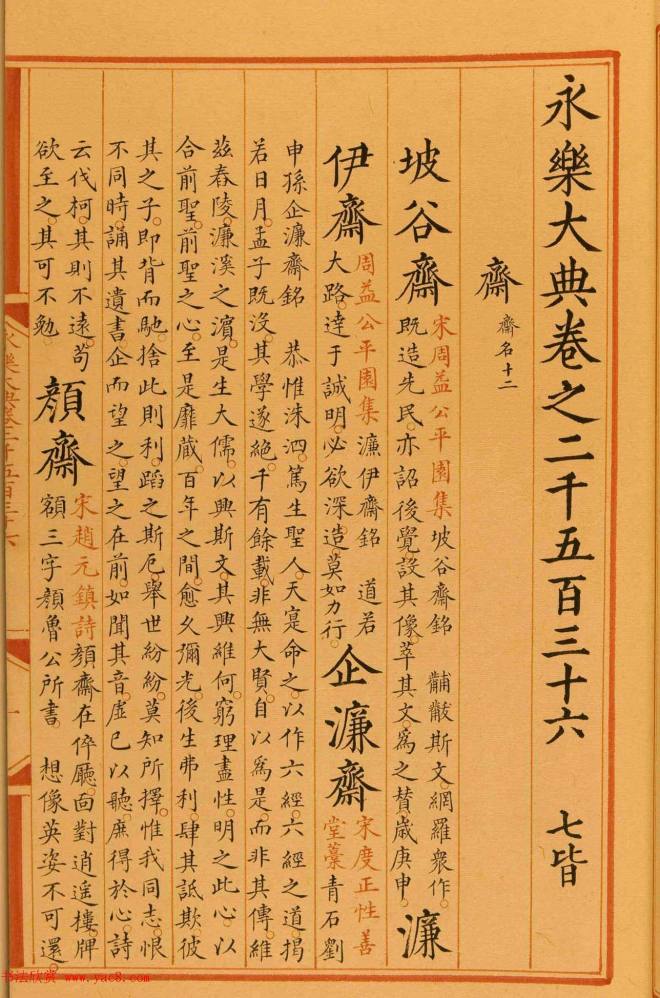 永樂大典卷之二千五百三十六 七皆
齋 齋名十二
坡谷齋 宋周益公平園集坡谷齋銘 黼黻斯文。網羅衆作。
既造先民。亦詔後覺。設其像。萃其文。爲之賛。歲庚申。 濂
伊齋 周益公平園集濂伊齋銘 道若
大路。達于誠明。必欲深造。莫如力行。 企濂齋 宋度正性善
堂藁青石劉
申孫企濂齋銘 恭惟洙泗。篤生聖人。天寔命之。以作六經。六經之道。揭
若日月。孟子既沒。其學遂絕。千有餘載。非無大賢。自以爲是。而非其傳。維
兹舂陵。濂溪之濵。是生大儒。以興斯文。其興維何。窮理盡性。明之此心。以
合前聖。前聖之心。至是靡藏。百年之間。愈久彌光。後生弗利。肆其詆欺。彼
其之子。即背而馳。捨此則利。蹈之斯厄。舉世紛紛。莫知所擇。惟我同志。恨
不同時。誦其遺書。企而望之。望之在前。如聞其音。虚已以聽。庶得於心。詩
云伐柯。其則不遠。苟
欲至之。其可不勉。 顔齋 宋趙元鎮詩顔齋在倅廳。面對逍遥樓。牌
額三字顔魯公所書。 想像英姿不可還。
永樂大典卷二千五百三十六
书法欣赏 www.yac8.com